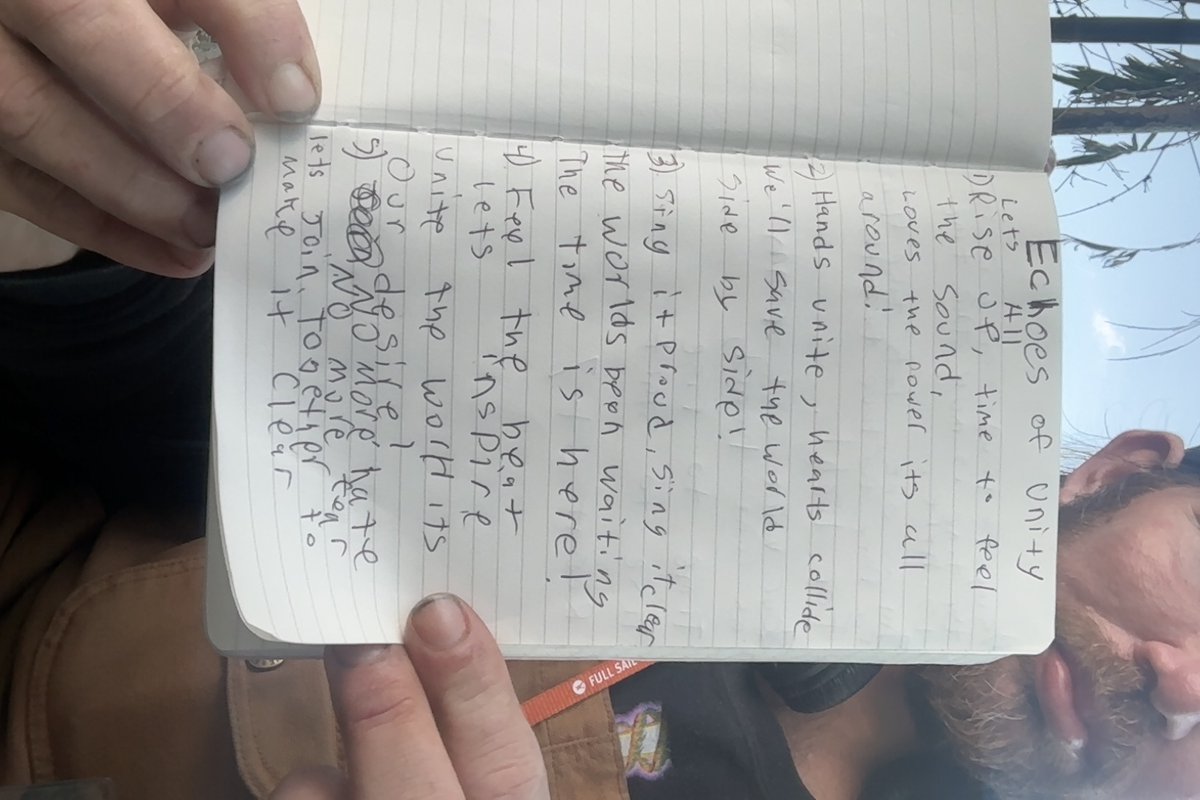 Echoes of Unity
Lets All
1) Rise up, time to feel
the sound,
Loves the power its all
around!
2) Hands unite, hearts collide
We'll save the world
Side by side!
3) Sing it Proud, Sing it clear
The worlds been waiting
The time is here!
4) Feel the heat
lets inspire
unite the world its
Our desire!
5) No more hate
No more fear
lets Join Together to
make it Clear
FULL SAIL